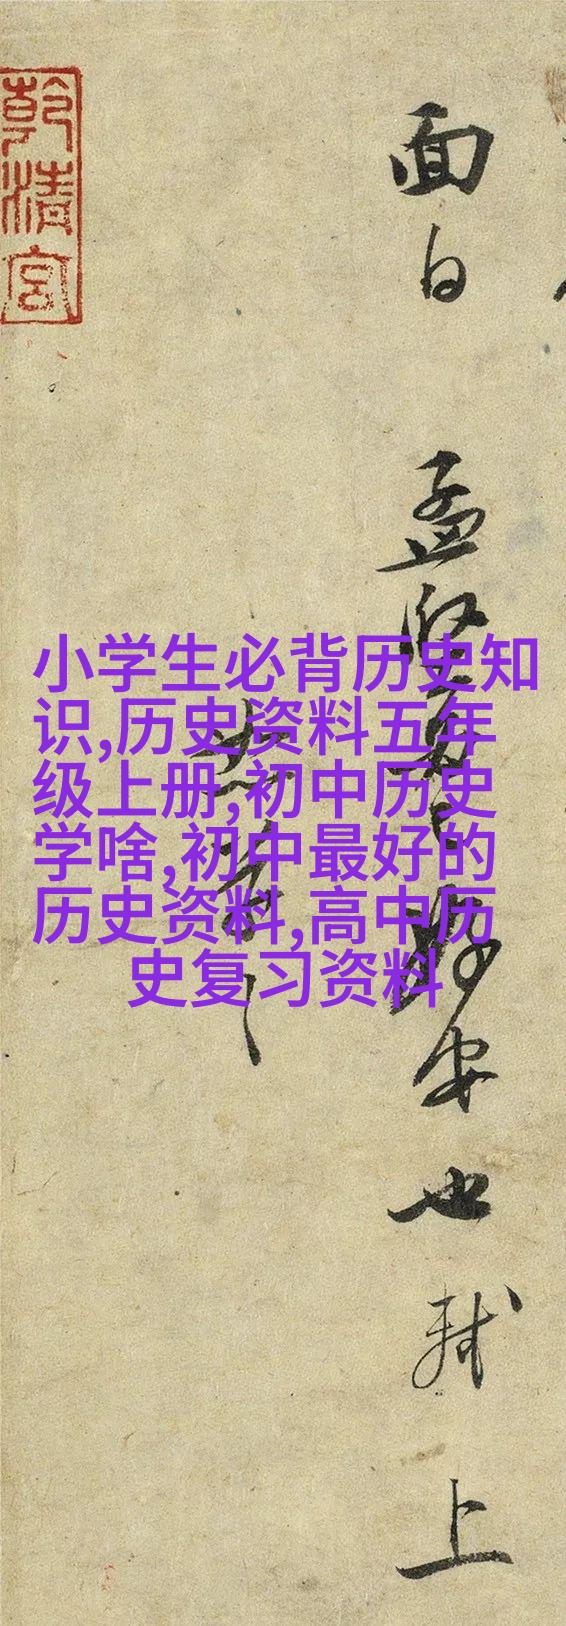 小学生必背历史知
识,历史资料五年
级上册,初中历史
学啥,初中最好的
历史资料,高中历
史复习资料
面白 孟堅 安也軾上
乾清宮